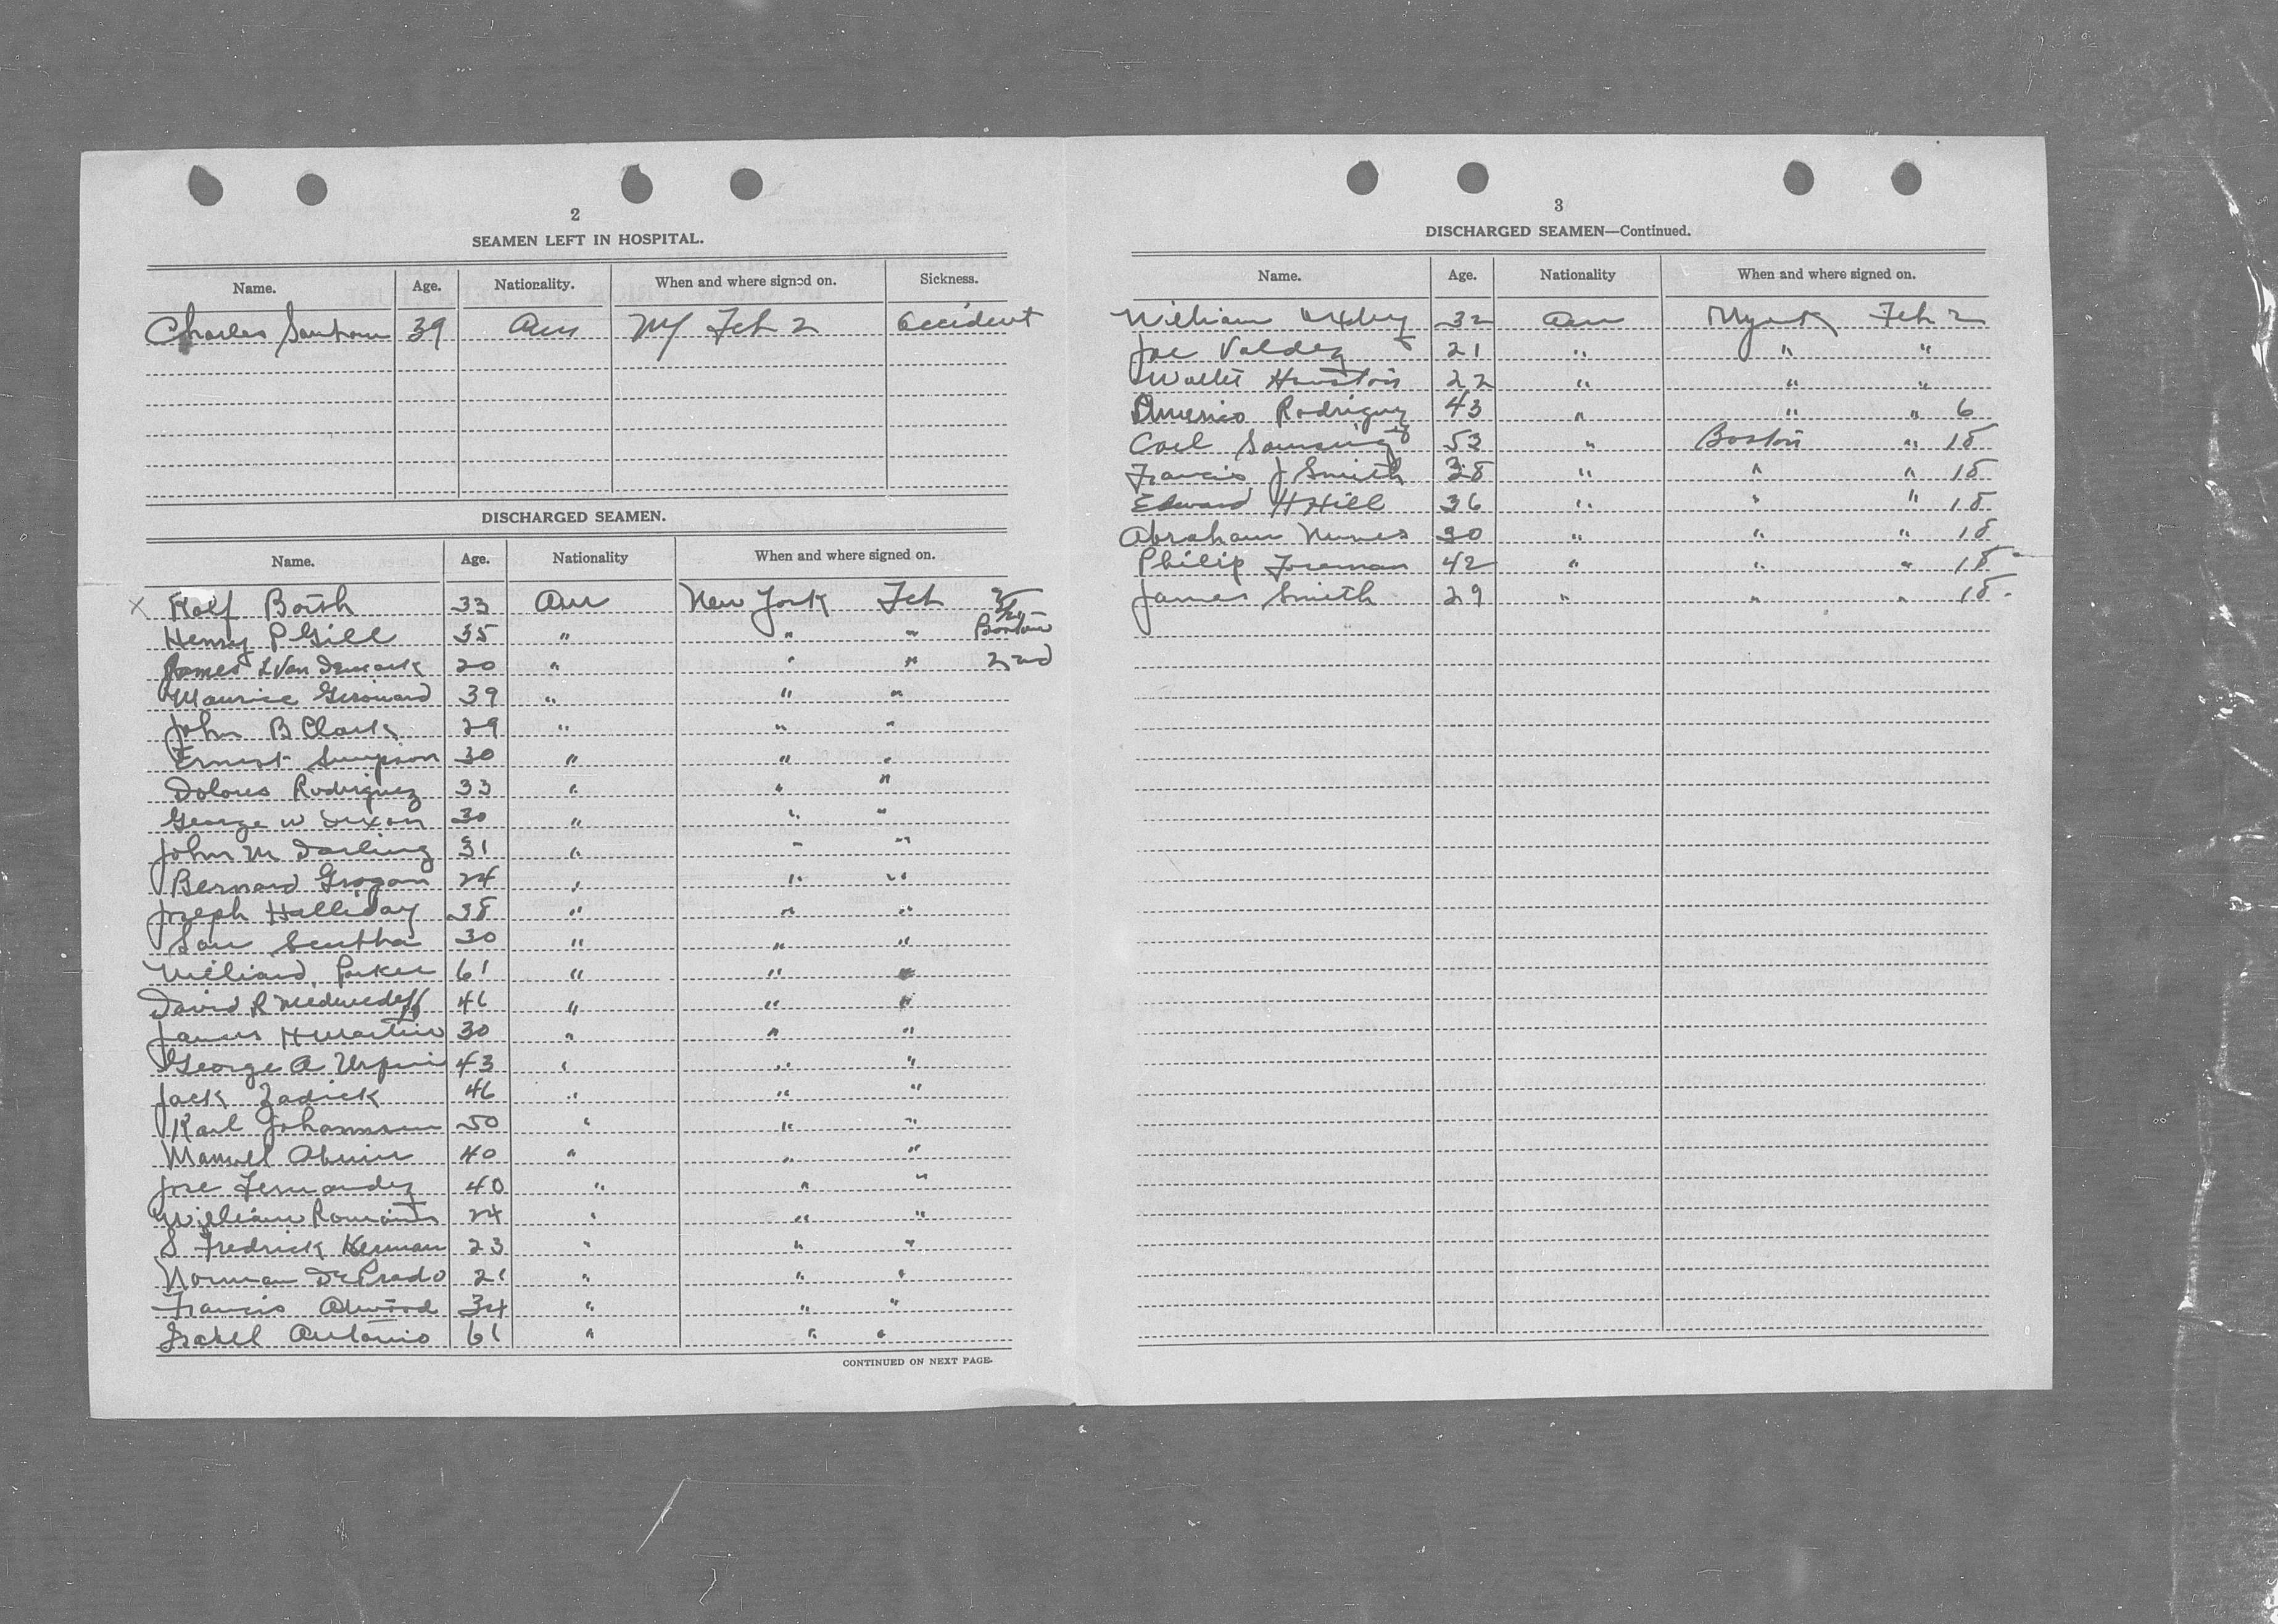 2
SEAMEN LEFT IN HOSPITAL.
Name. Age. Nationality. When and where signed on. Sickness.
Charles 39 Am NY Feb 2 accident
DISCHARGED SEAMEN.
Name. Age. Nationality When and where signed on.
X Rolf 33 Am New York Feb
Henry P Gill 35 " " " Boston
James L Van Demark 20 " " " 2nd
Maurice 39 " " "
John B Clark 29 " " "
Ernest Simpson 30 " " "
Dolores Rodriguez 33 " " "
George W Dixon 30 " " "
John M Darling 31 " " "
Bernard Grogan 24 " " "
Joseph Halliday 38 " " "
30 " " "
Parker 61 " " "
David R Medwedeff 41 " " "
James H Martin 30 " " "
George A 43 " " "
Jack Zadick 46 " " "
Karl Johannsen 50 " " "
Manuel 40 " " "
Jose Fernandez 40 " " "
William 24 " " "
Fredrick Herman 23 " " "
Norman De Prado 21 " " "
Francis 34 " " "
Isabel Antonio 61 " " "
CONTINUED ON NEXT PAGE.
3
DISCHARGED SEAMEN—Continued.
Name. Age. Nationality When and where signed on.
William 32 Am N york Feb 2
Joe Valdez 21 " " "
Houston 22 " " "
Americo Rodriguez 43 " " " 6
53 " Boston " 18
Francis J Smith 38 " " " 18
Edward H Hill 36 " " " 18
Abraham Nunes 30 " " " 18
Philip Foreman 42 " " " 18
James Smith 29 " " " 18.